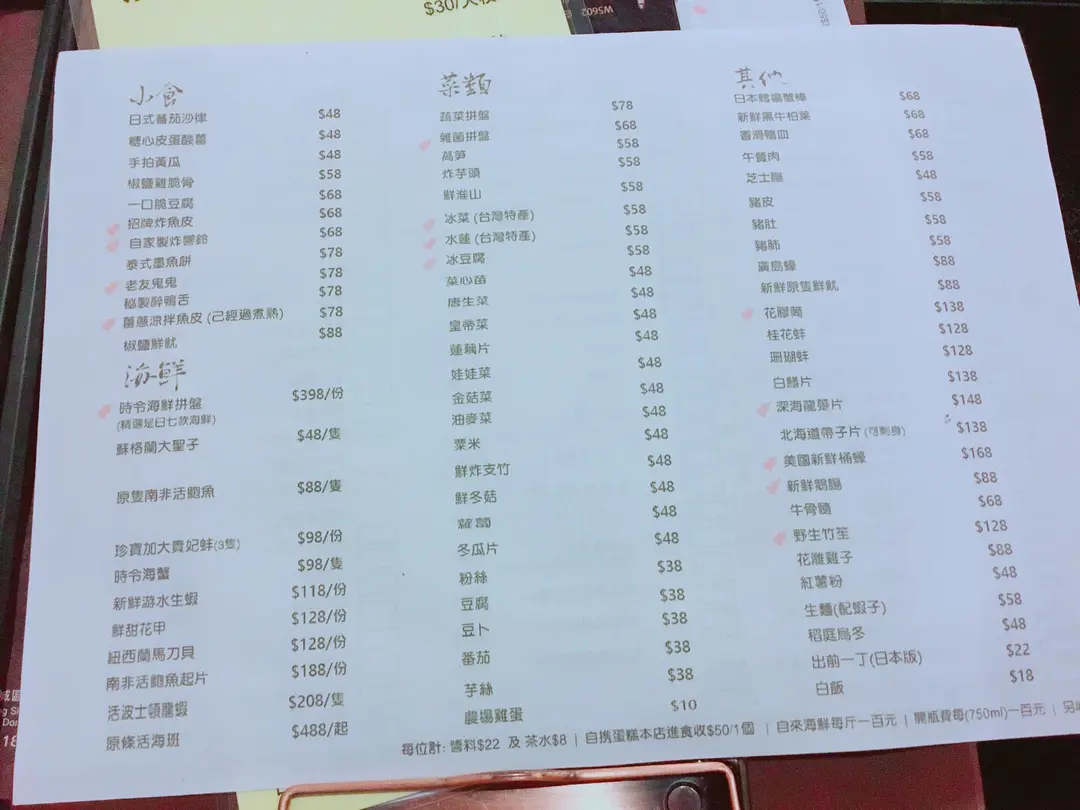 $30/大枝
WS602
小食
日式蕃茄沙律 $48
糖心皮蛋酸薑 $48
手拍黃瓜 $48
椒鹽雞脆骨 $58
一口脆豆腐 $68
招牌炸魚皮 $68
自家製炸響鈴 $68
泰式墨魚餅 $78
老友鬼鬼 $78
秘製醉鴨舌 $78
薑蔥涼拌魚皮 (已經過煮熟) $78
椒鹽鮮魷 $88
海鮮
時令海鮮拼盤 $398/份
(精選是日七款海鮮)
蘇格蘭大聖子 $48/隻
原隻南非活鮑魚 $88/隻
珍寶加大貴妃蚌(3隻) $98/份
時令海蟹 $98/隻
新鮮游水生蝦 $118/份
鮮甜花甲 $128/份
紐西蘭馬刀貝 $128/份
南非活鮑魚起片 $188/份
活波士頓龍蝦 $208/隻
原條活海班 $488/起
菜類
蔬菜拼盤 $78
雜菌拼盤 $68
萵笋 $58
炸芋頭 $58
鮮淮山 $58
冰菜 (台灣特產) $58
水蓮 (台灣特產) $58
冰豆腐 $58
菜心苗 $48
唐生菜 $48
皇帝菜 $48
蓮藕片 $48
娃娃菜 $48
金菇菜 $48
油麥菜 $48
粟米 $48
鮮炸支竹 $48
鮮冬菇 $48
蘿蔔 $48
冬瓜片 $48
粉絲 $38
豆腐 $38
豆卜 $38
番茄 $38
芋絲 $38
農場雞蛋 $10
其他
日本鱈場蟹棒 $68
新鮮黑牛柏葉 $68
香滑鴨血 $68
午餐肉 $58
芝士腸 $48
豬皮 $58
豬肚 $58
豬肺 $58
廣島蠔 $88
新鮮原隻鮮魷 $88
花膠筒 $138
桂花蚌 $128
珊瑚蚌 $128
白鱔片 $138
深海龍躉片 $148
北海道帶子片 (可刺身) $138
美國新鮮桶蠔 $168
新鮮鵝腸 $88
牛骨髓 $68
野生竹笙 $128
花雕雞子 $88
紅薯粉 $48
生麵(配蝦子) $58
稻庭烏冬 $48
出前一丁(日本版) $22
白飯 $18
每位計: 醬料$22 及 茶水$8 | 自携蛋糕本店進食收$50/1個 | 自來海鮮每斤一百元 | 開瓶費每(750ml)一百元 | 另